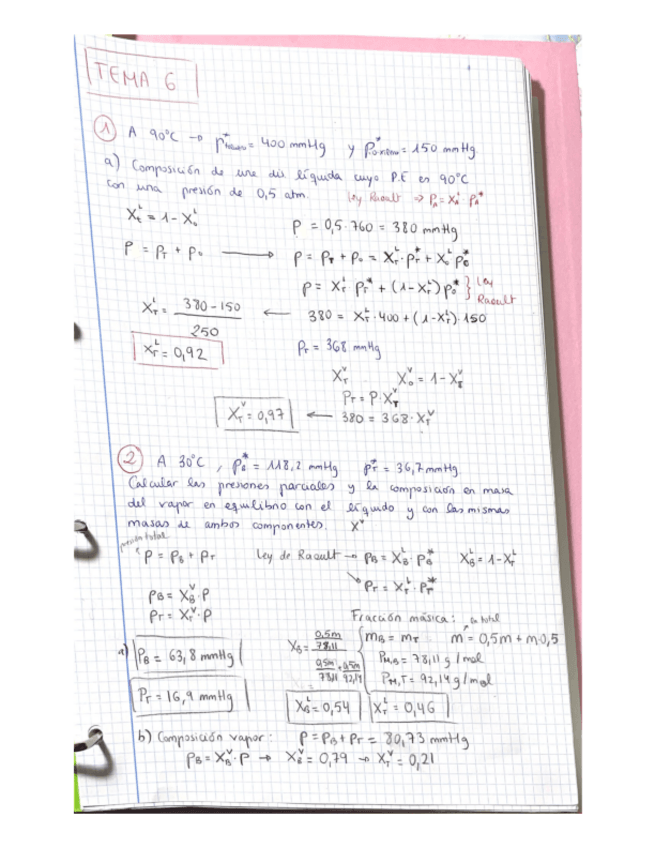 TEMA 6
① A 90°C → p*tolueno = 400 mmHg y p*o-xileno = 150 mmHg
a) Composición de una dis líquida cuyo P.E es 90°C
con una presión de 0,5 atm. Ley Raoult ⇒ P_A = X_A^L · P_A*
X_T^L = 1 - X_o^L P = 0,5 · 760 = 380 mmHg
P = P_T + P_o → P = P_T + P_o = X_T^L · P_T* + X_o^L P_o*
P = X_T^L P_T* + (1 - X_T^L) P_o* } Ley Raoult
X_T^L = (380 - 150) / 250 ← 380 = X_T^L · 400 + (1 - X_T^L) · 150
X_T^L = 0,92 P_T = 368 mmHg
X_T^V X_o^V = 1 - X_T^V
P_T = P · X_T^V
X_T^V = 0,97 ← 380 = 368 · X_T^V
② A 30°C, P_B* = 118,2 mmHg P_T* = 36,7 mmHg
Calcular las presiones parciales y la composición en masa
del vapor en equilibrio con el líquido y con las mismas
masas de ambos componentes. X^V
presión total
P = P_B + P_T Ley de Raoult → P_B = X_B^L · P_B* X_B^L = 1 - X_T^L
P_T = X_T^L · P_T*
P_B = X_B^V · P
P_T = X_T^V · P
Fracción másica: m total
X_B = (0,5m / 78,11) / (0,5m / 78,11 + 0,5m / 92,14) { m_B = m_T m = 0,5m + m·0,5
a) P_B = 63,8 mmHg P_M,B = 78,11 g/mol
P_M,T = 92,14 g/mol
P_T = 16,9 mmHg X_B^L = 0,54 X_T^L = 0,46
b) Composición vapor: P = P_B + P_T = 80,73 mmHg
P_B = X_B^V · P → X_B^V = 0,79 → X_T^V = 0,21